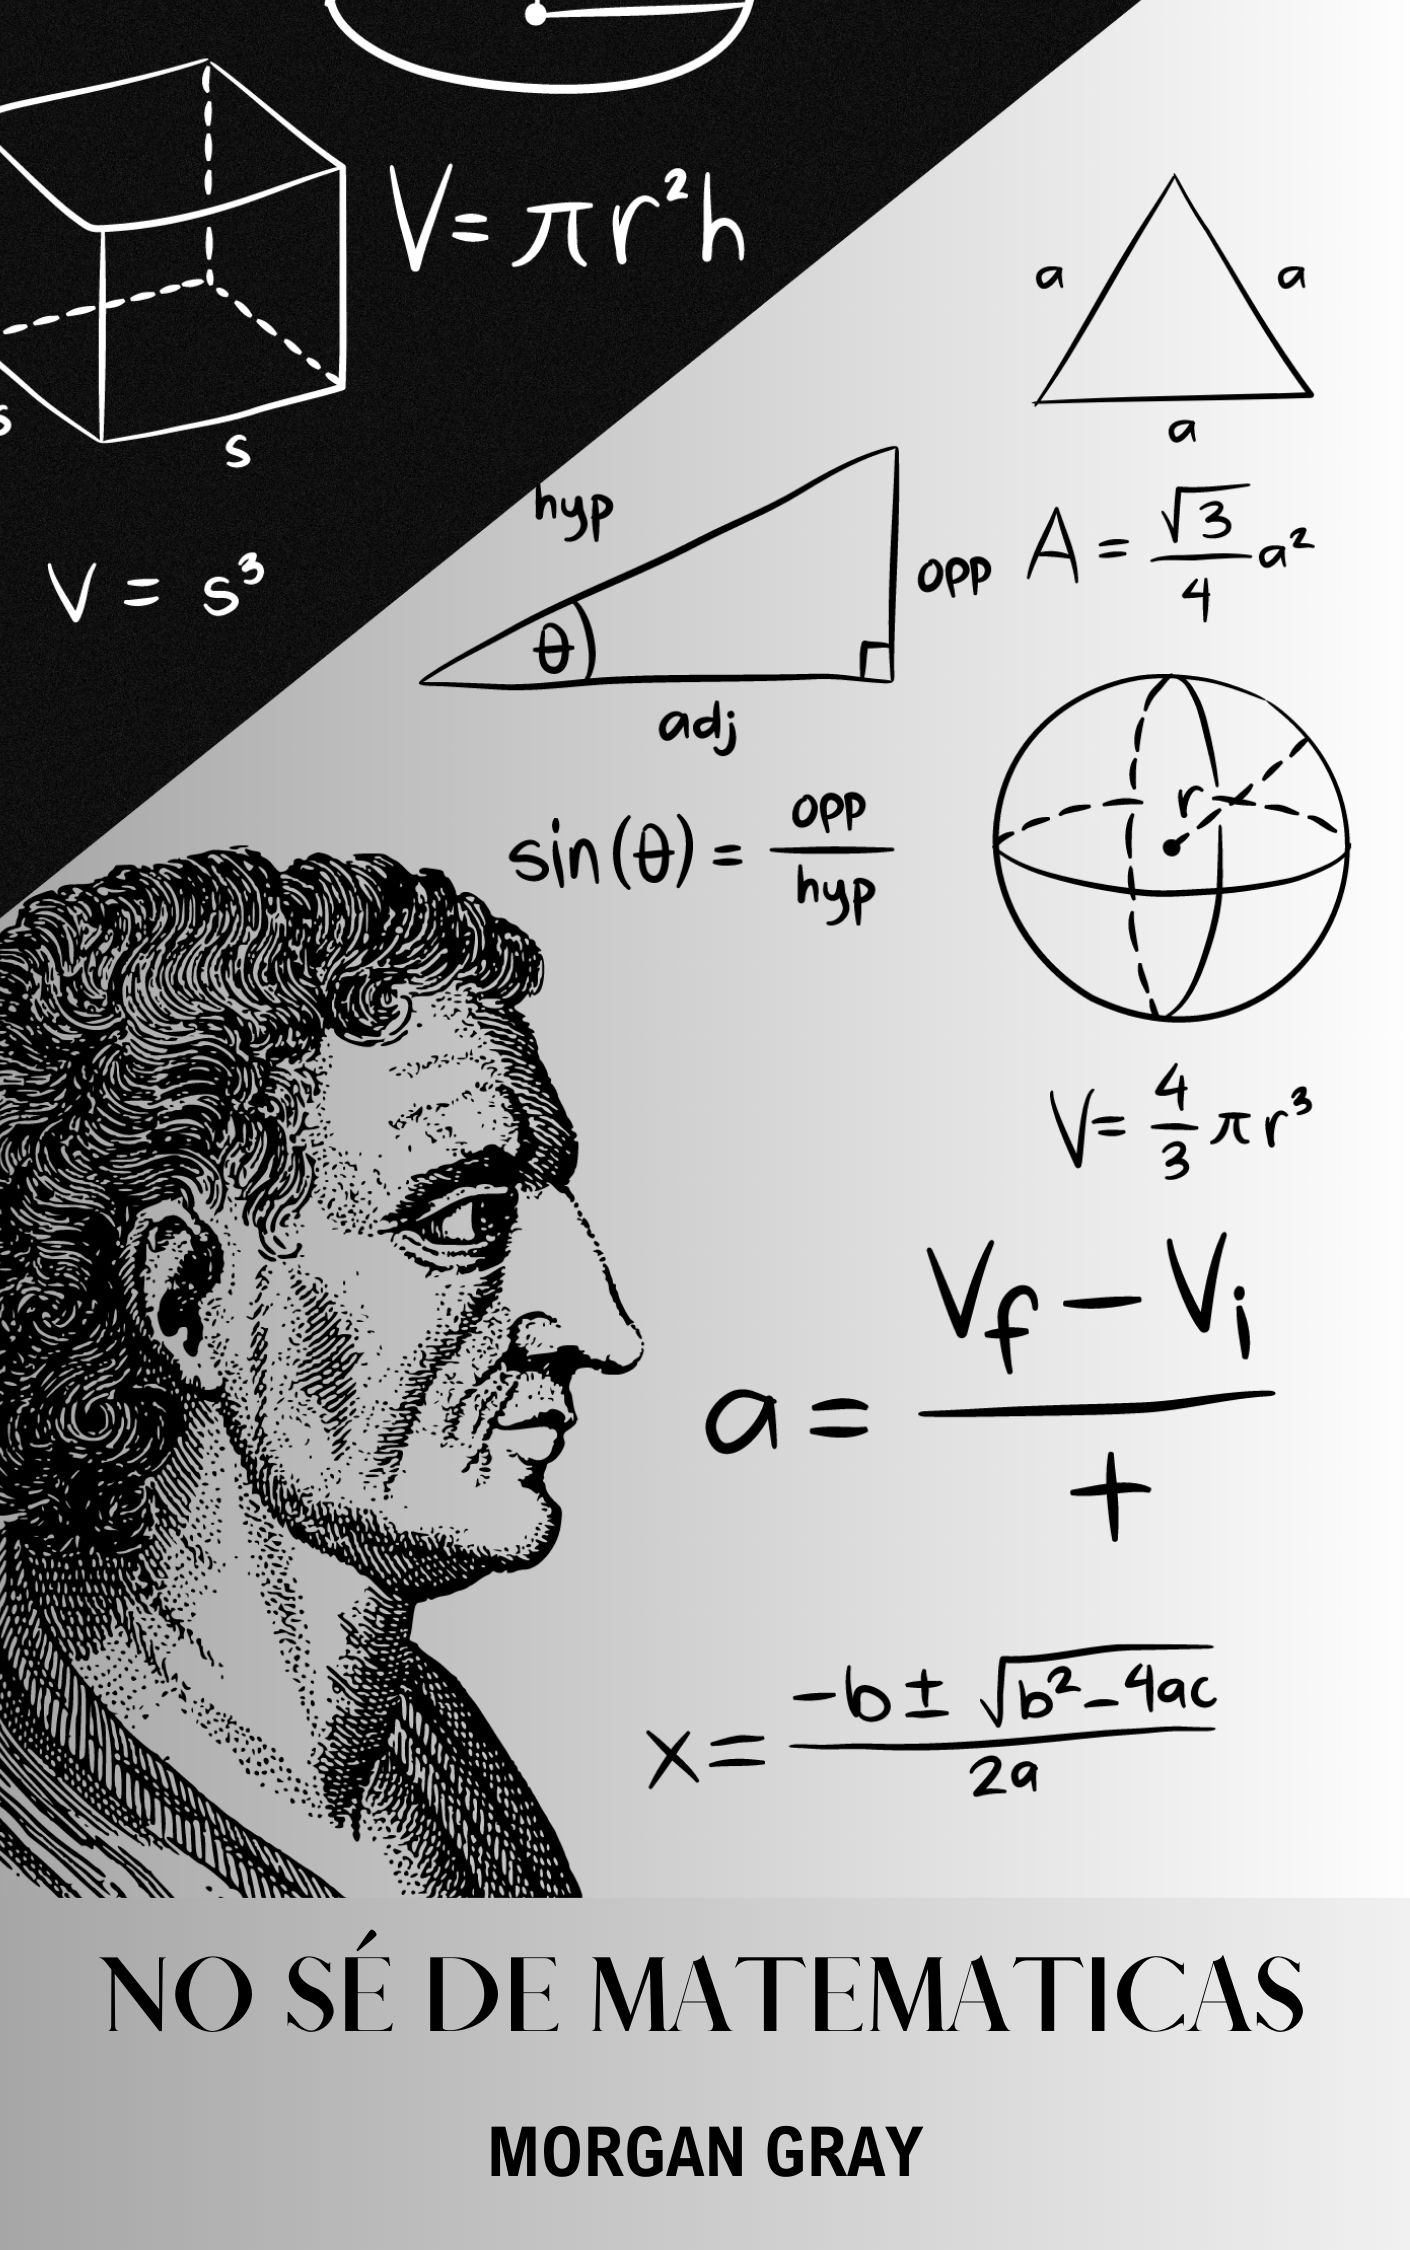 V = πr²h
s
s
V = s³
a
a
a
hyp
opp
θ
adj
A = √3/4 a²
sin(θ) = opp/hyp
r
V = 4/3 πr³
a = Vf - Vi / t
x = -b ± √b² - 4ac / 2a
NO SÉ DE MATEMATICAS
MORGAN GRAY